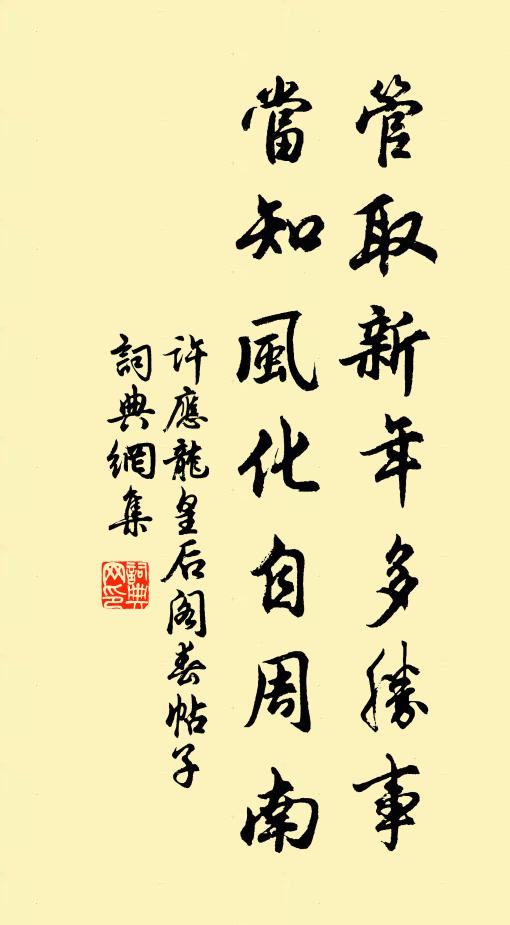 管取新年多勝事
當知風化自周南
許應龍皇后閣春帖子
詞典網集
詞典
网印